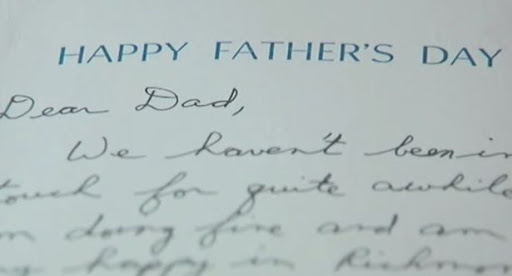 HAPPY FATHER'S DAY
Dear Dad,
We haven't been in
touch for quite awhile
doing fine and am
happy in Richmon